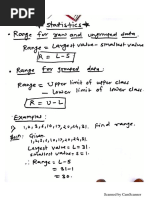 * Statistics *
• Range for raw and ungrouped data
Range = Largest value - smallest value
R = L - S
• Range for grouped data:
Range = Upper limit of upper class
- Lower limit of lower class
R = U - L
Examples:
find range.
Given
Largest value = L = 31.
smallest value = S = 1
∴ Range = L - S
= 31 - 1
= 30.
Scanned by CamScanner